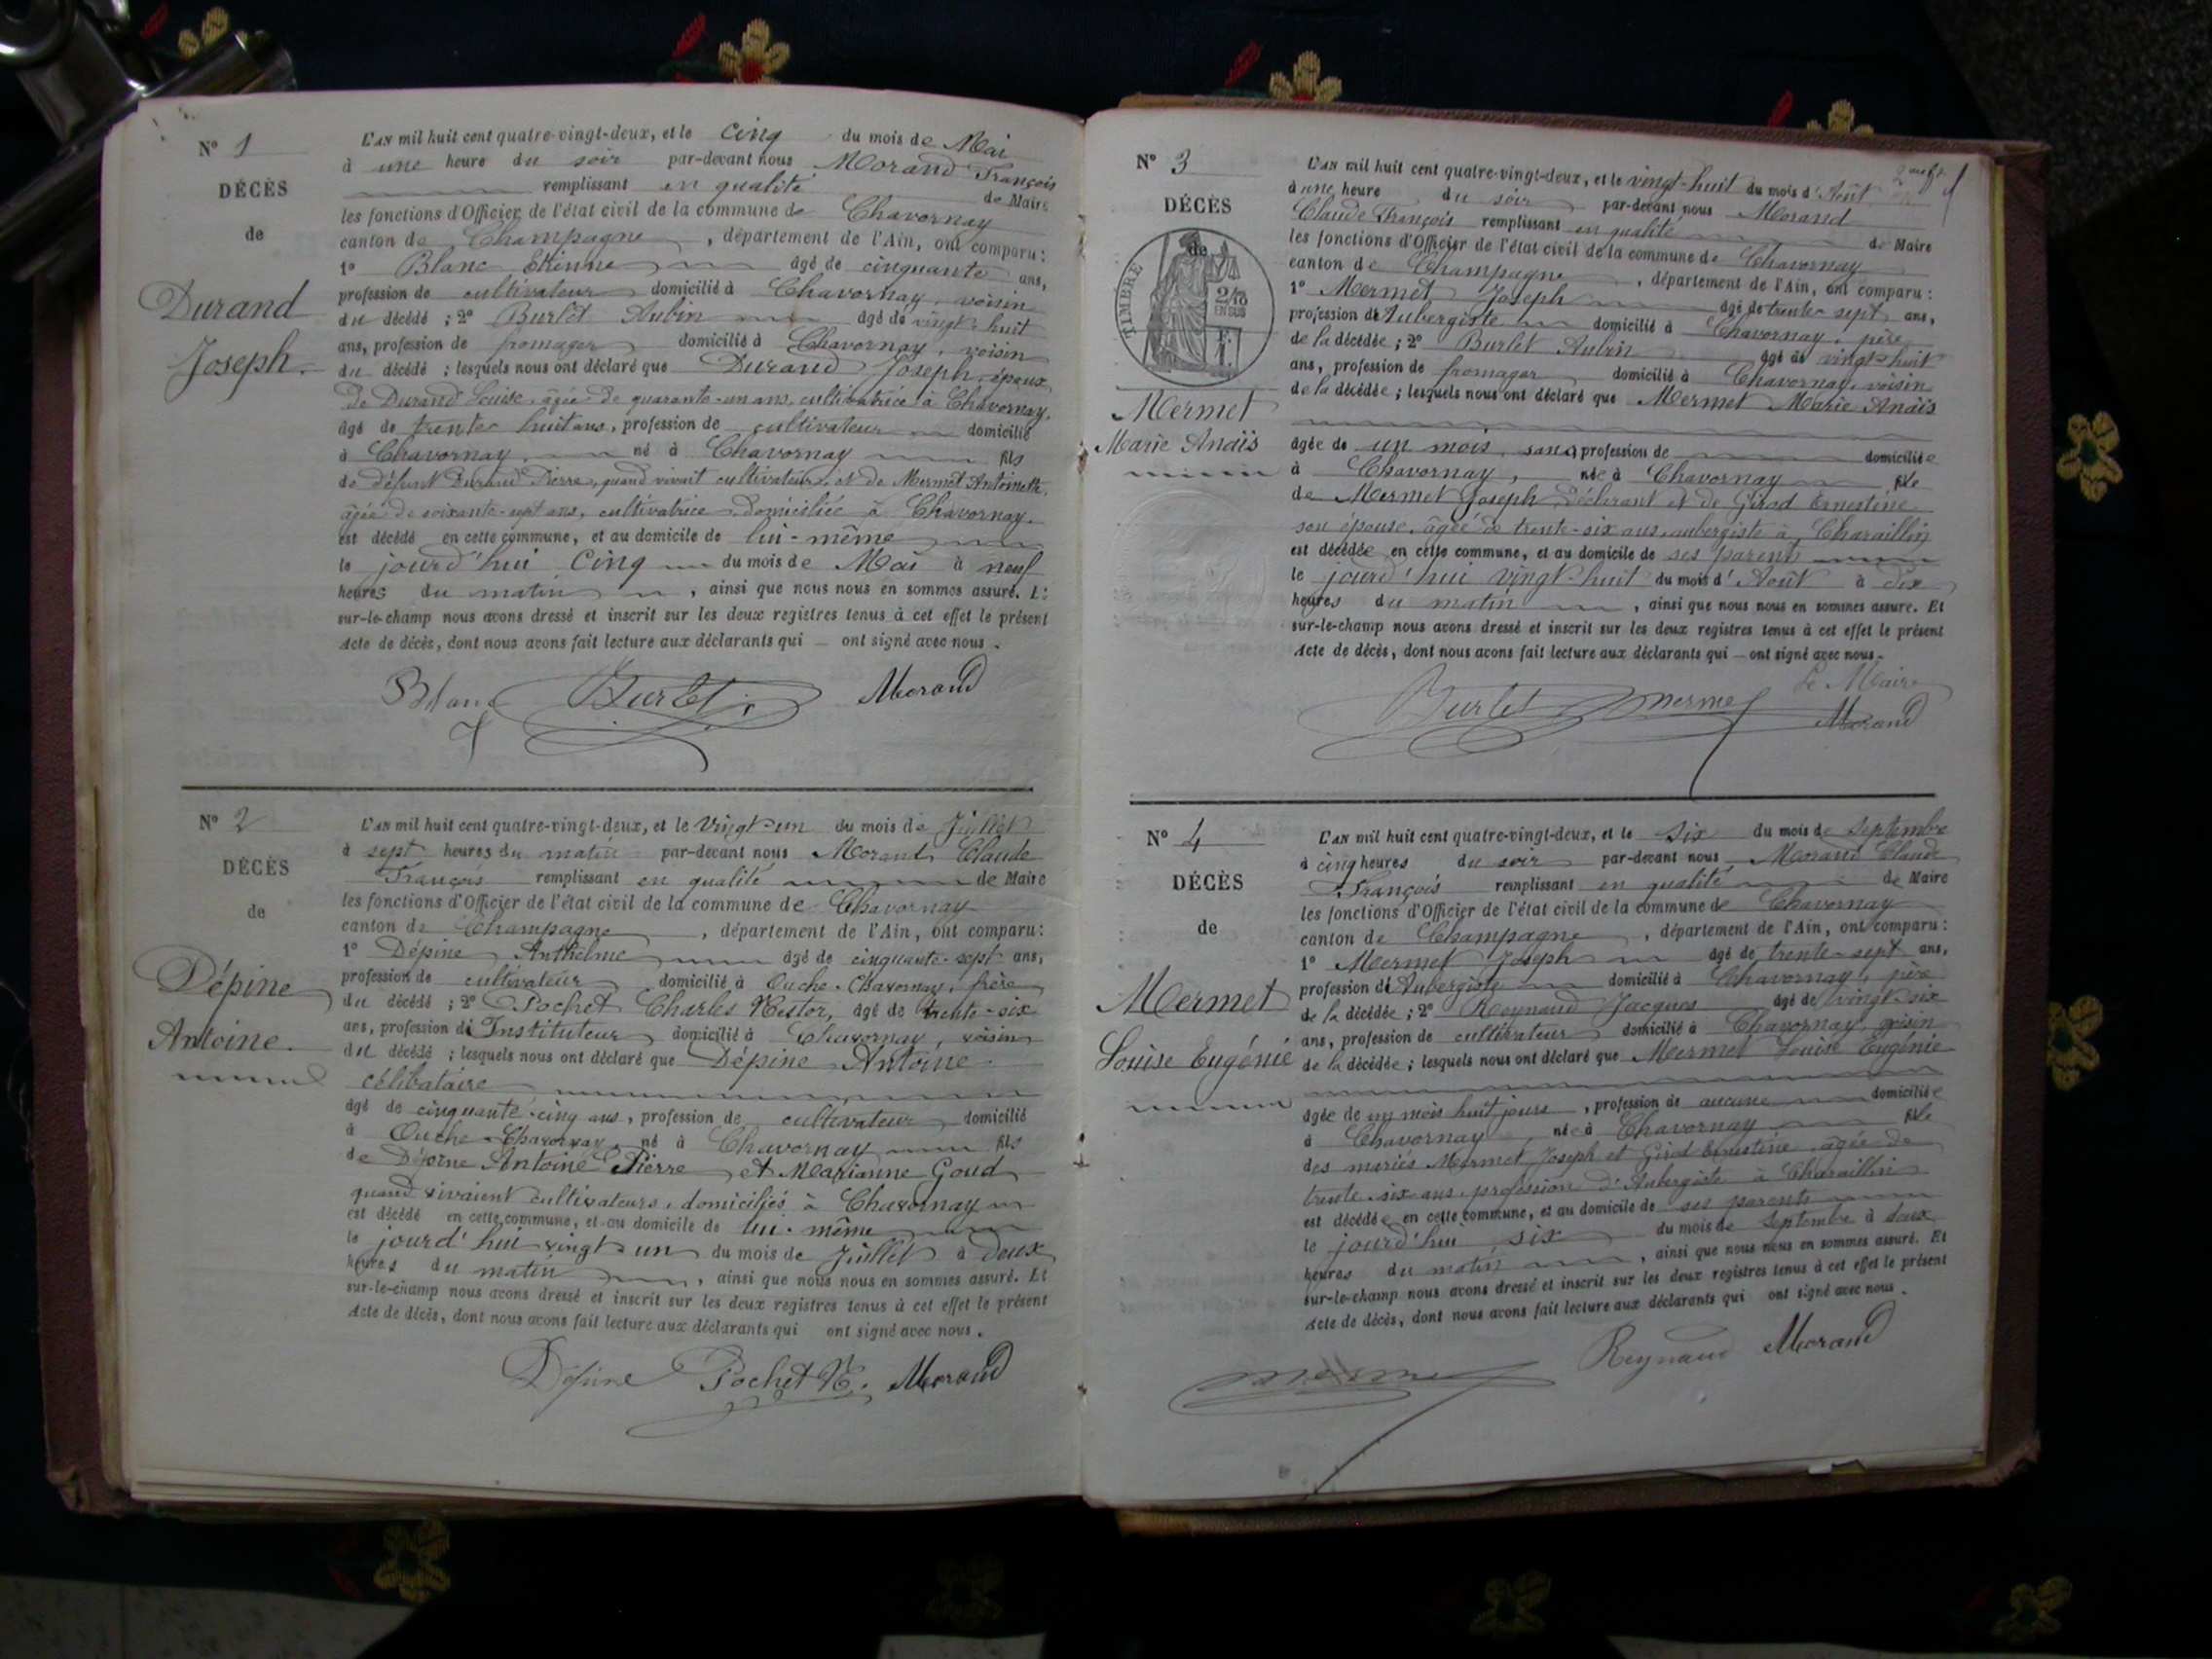 N° 1
DÉCÈS
de
Durand
Joseph.
L'AN mil huit cent quatre-vingt-deux, et le cinq du mois de Mai
à une heure du soir par-devant nous Morand François
remplissant en qualité de Maire
les fonctions d'Officier de l'état civil de la commune de Chavornay
canton de Champagne, département de l'Ain, ont comparu:
1° Blanc Etienne âgé de cinquante ans,
profession de cultivateur domicilié à Chavornay, voisin
du décédé; 2° Burlet Aubin âgé de vingt-huit
ans, profession de fromager domicilié à Chavornay, voisin
du décédé; lesquels nous ont déclaré que Durand Joseph, époux
de Durand Louise, âgée de quarante-un ans, cultivatrice à Chavornay,
âgé de trente huit ans, profession de cultivateur domicilié
à Chavornay, né à Chavornay fils
de défunt Durand Pierre, quand vivait cultivateur, et de Mermet Antoinette,
âgée de soixante-sept ans, cultivatrice domiciliée à Chavornay.
est décédé en cette commune, et au domicile de lui-même
le jourd'hui cinq du mois de Mai à neuf
heures du matin, ainsi que nous nous en sommes assuré. Et
sur-le-champ nous avons dressé et inscrit sur les deux registres tenus à cet effet le présent
Acte de décès, dont nous avons fait lecture aux déclarants qui — ont signé avec nous.
Blanc Burlet Morand
N° 2
DÉCÈS
de
Dépine
Antoine.
L'AN mil huit cent quatre-vingt-deux, et le vingt-un du mois de Juillet
à sept heures du matin par-devant nous Morand Claude
François remplissant en qualité de Maire
les fonctions d'Officier de l'état civil de la commune de Chavornay
canton de Champagne, département de l'Ain, ont comparu:
1° Dépine Anthelme âgé de cinquante-sept ans,
profession de cultivateur domicilié à Ouche-Chavornay, frère
du décédé; 2° Pochet Charles Nestor, âgé de trente-six
ans, profession de Instituteur domicilié à Chavornay, voisin
du décédé; lesquels nous ont déclaré que Dépine Antoine
célibataire
âgé de cinquante-cinq ans, profession de cultivateur domicilié
à Ouche-Chavornay, né à Chavornay fils
de Dépine Antoine Pierre et Marianne Goud
quand vivaient cultivateurs, domiciliés à Chavornay
est décédé en cette commune, et au domicile de lui-même
le jourd'hui vingt-un du mois de Juillet à deux
heures du matin, ainsi que nous nous en sommes assuré. Et
sur-le-champ nous avons dressé et inscrit sur les deux registres tenus à cet effet le présent
Acte de décès, dont nous avons fait lecture aux déclarants qui ont signé avec nous.
Dépine Pochet N. Morand
N° 3
DÉCÈS
de
TIMBRE
2/10
EN SUS
Mermet
Marie Anaïs
L'AN mil huit cent quatre-vingt-deux, et le vingt-huit du mois d'Août
à une heure du soir par-devant nous Morand
Claude François remplissant en qualité de Maire
les fonctions d'Officier de l'état civil de la commune de Chavornay
canton de Champagne, département de l'Ain, ont comparu:
1° Mermet Joseph âgé de trente-sept ans,
profession de Aubergiste domicilié à Chavornay, père
de la décédée; 2° Burlet Aubin âgé de vingt-huit
ans, profession de fromager domicilié à Chavornay, voisin
de la décédée; lesquels nous ont déclaré que Mermet Marie Anaïs
âgée de un mois, sans profession de domiciliée
à Chavornay, née à Chavornay fille
de Mermet Joseph déclarant et de Girod Ernestine
son épouse, âgée de trente-six ans, aubergiste à Charaillin
est décédée en cette commune, et au domicile de ses parents
le jourd'hui vingt-huit du mois d'Août à dix
heures du matin, ainsi que nous nous en sommes assuré. Et
sur-le-champ nous avons dressé et inscrit sur les deux registres tenus à cet effet le présent
Acte de décès, dont nous avons fait lecture aux déclarants qui — ont signé avec nous.
Le Maire
Burlet Mermet Morand
N° 4
DÉCÈS
de
Mermet
Louise Eugénie
L'AN mil huit cent quatre-vingt-deux, et le six du mois de Septembre
à cinq heures du soir par-devant nous Morand Claude
François remplissant en qualité de Maire
les fonctions d'Officier de l'état civil de la commune de Chavornay
canton de Champagne, département de l'Ain, ont comparu:
1° Mermet Joseph âgé de trente-sept ans,
profession de Aubergiste domicilié à Chavornay, père
de la décédée; 2° Reynaud Jacques âgé de vingt-six
ans, profession de cultivateur domicilié à Chavornay, voisin
de la décédée; lesquels nous ont déclaré que Mermet Louise Eugénie
âgée de un mois huit jours, profession de aucune domiciliée
à Chavornay née à Chavornay fille
des mariés Mermet Joseph et Girod Ernestine, agée de
trente-six ans, profession d'Aubergiste à Charaillin
est décédée en cette commune, et au domicile de ses parents
le jourd'hui six du mois de Septembre à deux
heures du matin, ainsi que nous nous en sommes assuré. Et
sur-le-champ nous avons dressé et inscrit sur les deux registres tenus à cet effet le présent
Acte de décès, dont nous avons fait lecture aux déclarants qui ont signé avec nous.
Mermet Reynaud Morand